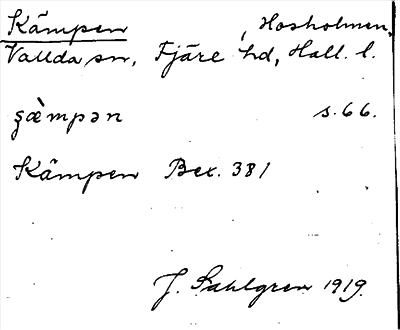 Kämpen, Hosholmen,
Vallda sn, Fjäre hd, Hall. l.
s.66.
Kämpen Bex. 381
J. Sahlgren 1919.